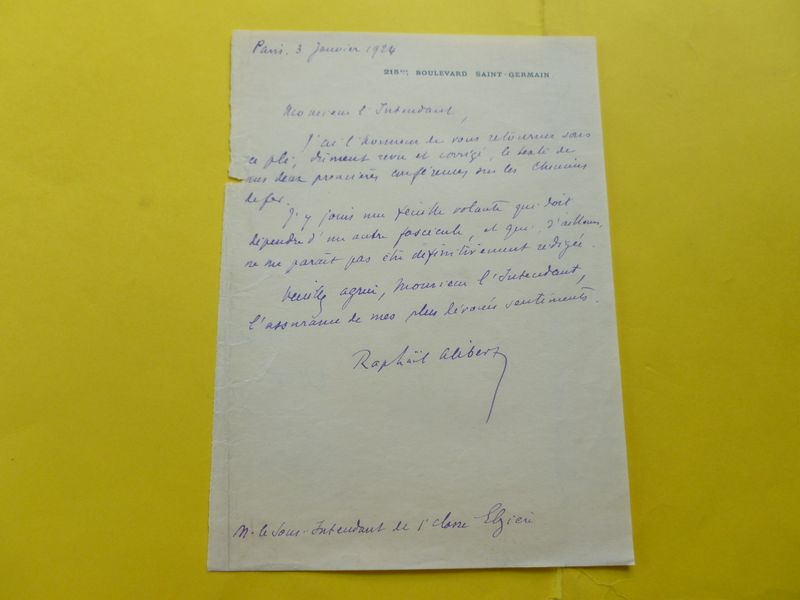 Paris. 3 Janvier 1924
215bis, BOULEVARD SAINT-GERMAIN
Monsieur l'Intendant,
J'ai l'honneur de vous retourner sous
ce pli, dûment revu et corrigé, le texte de
mes deux premières conférences sur les chemins
de fer.
J'y joins une feuille volante qui doit
dépendre d'un autre fascicule, et qui, d'ailleurs,
ne me paraît pas être définitivement rédigée.
Veuillez agréer, Monsieur l'Intendant,
l'assurance de mes plus dévoués sentiments.
Raphaël Alibert
M. le Sous-Intendant de 1e classe